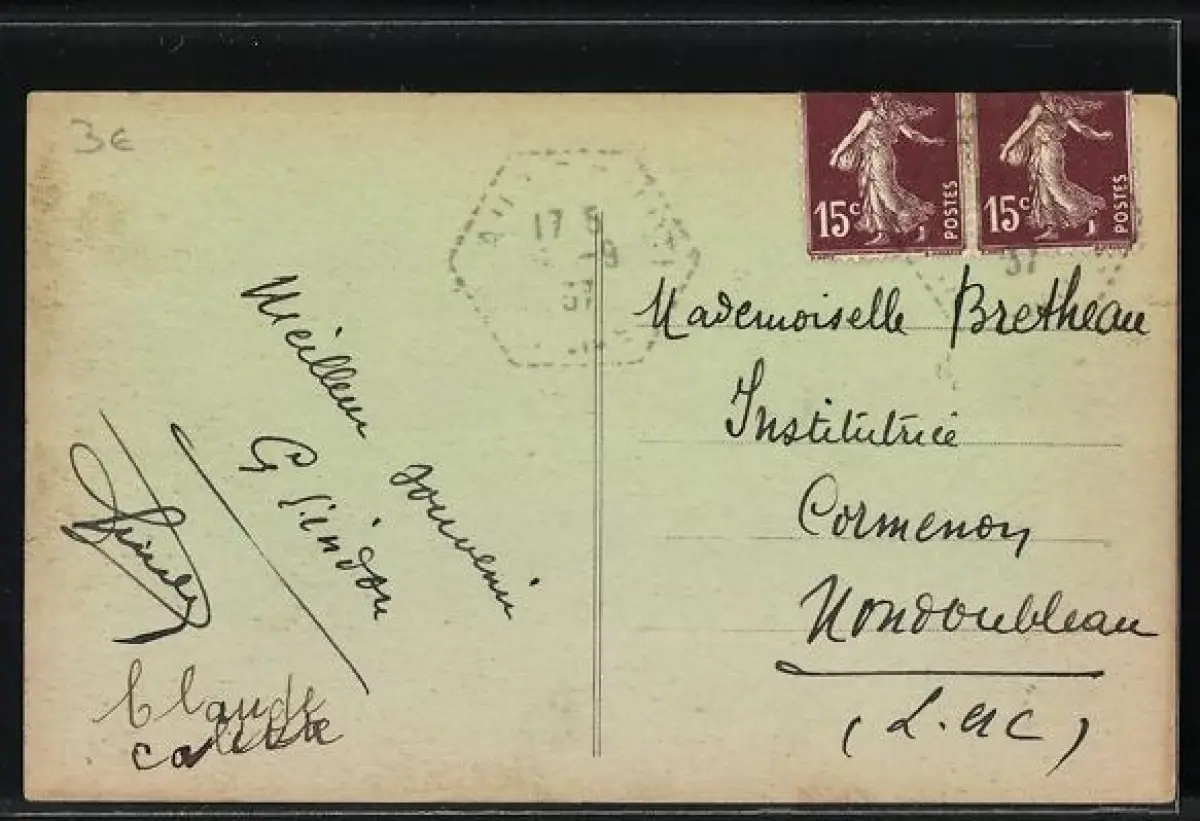 3€
17 5
-9
37
15c POSTES
15c POSTES
37
Meilleur souvenir
G Lindon
Claude
Colette
Mademoiselle Bretheau
Institutrice
Cormenon
Mondoubleau
(L. et C)